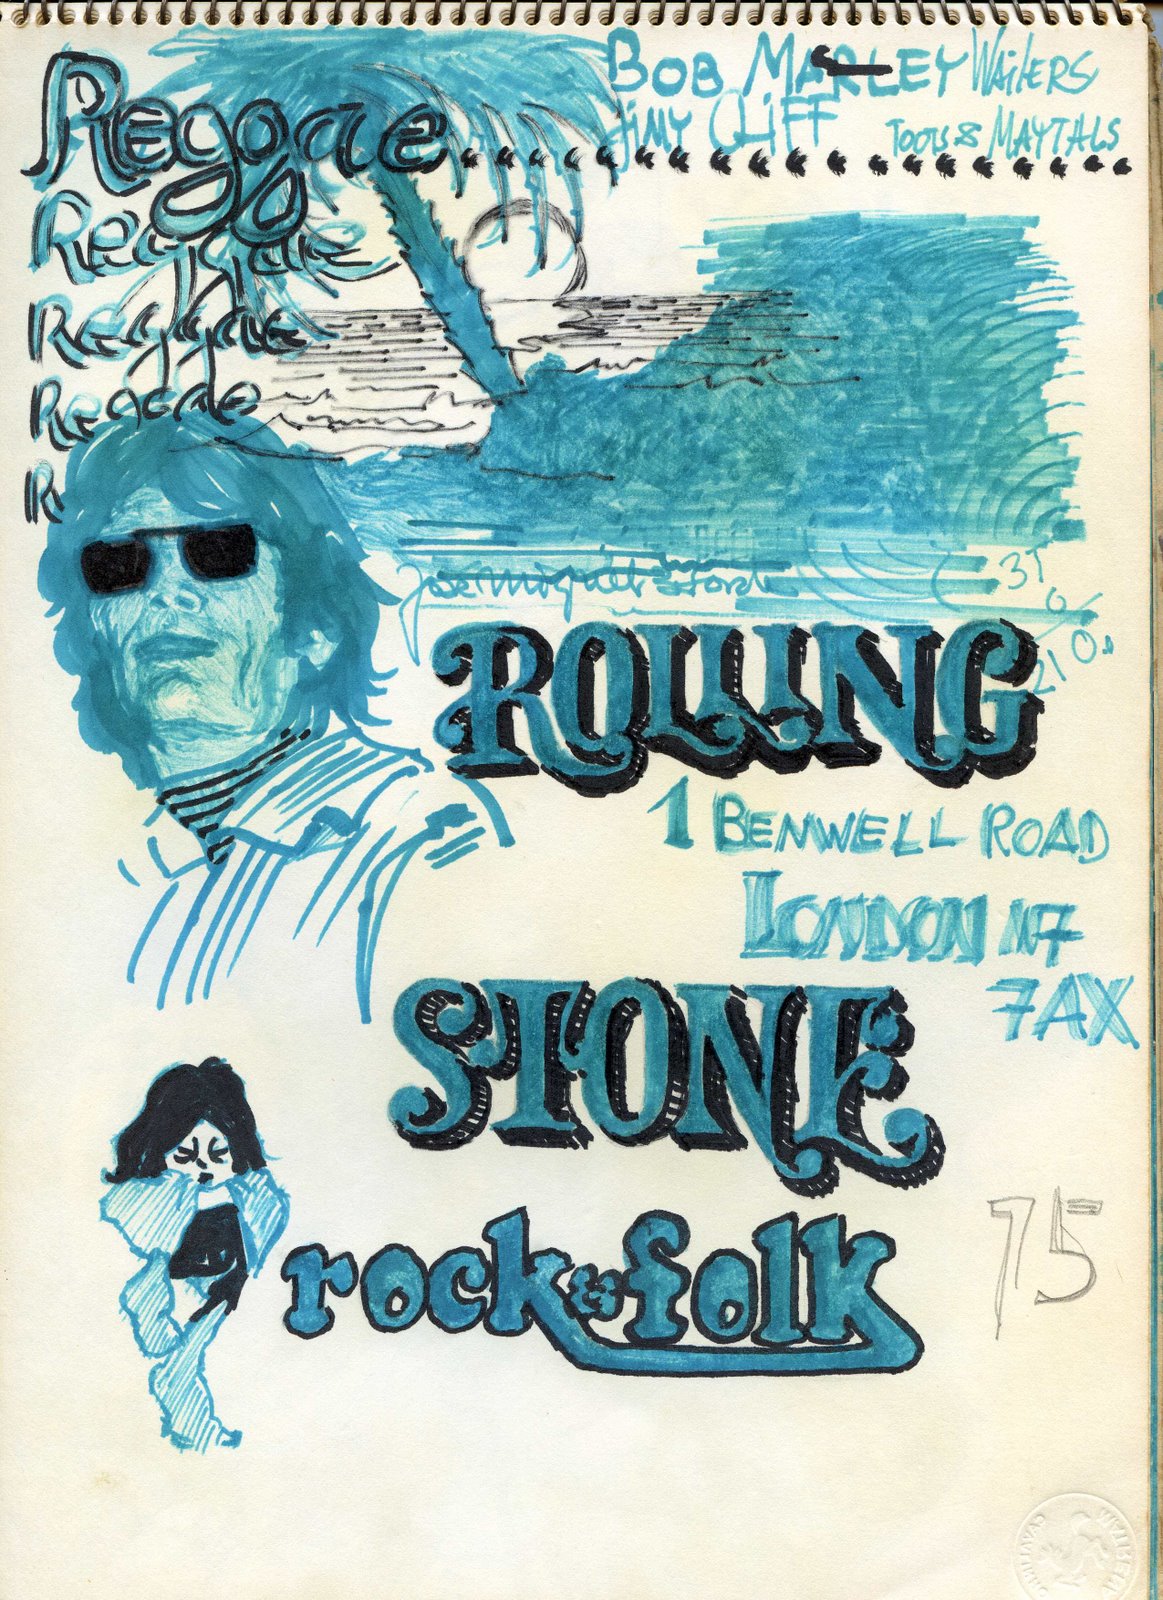 Reggae
BOB MARLEY WAILERS
JIMY CLIFF TOOTS & MAYTALS
Reggae
Reggae
Reggae
R
José Miguel
ROLLING
1 BENWELL ROAD
LONDON N7
7AX
STONE
rock & folk
75